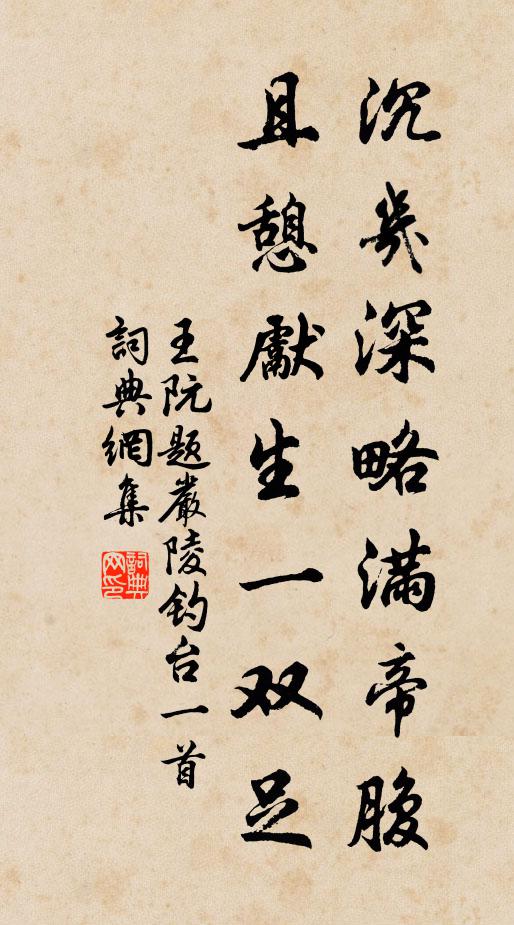 沉几深略满帝腹
且憩献生一双足
王阮题严陵钓台一首
词典网集
词典网印